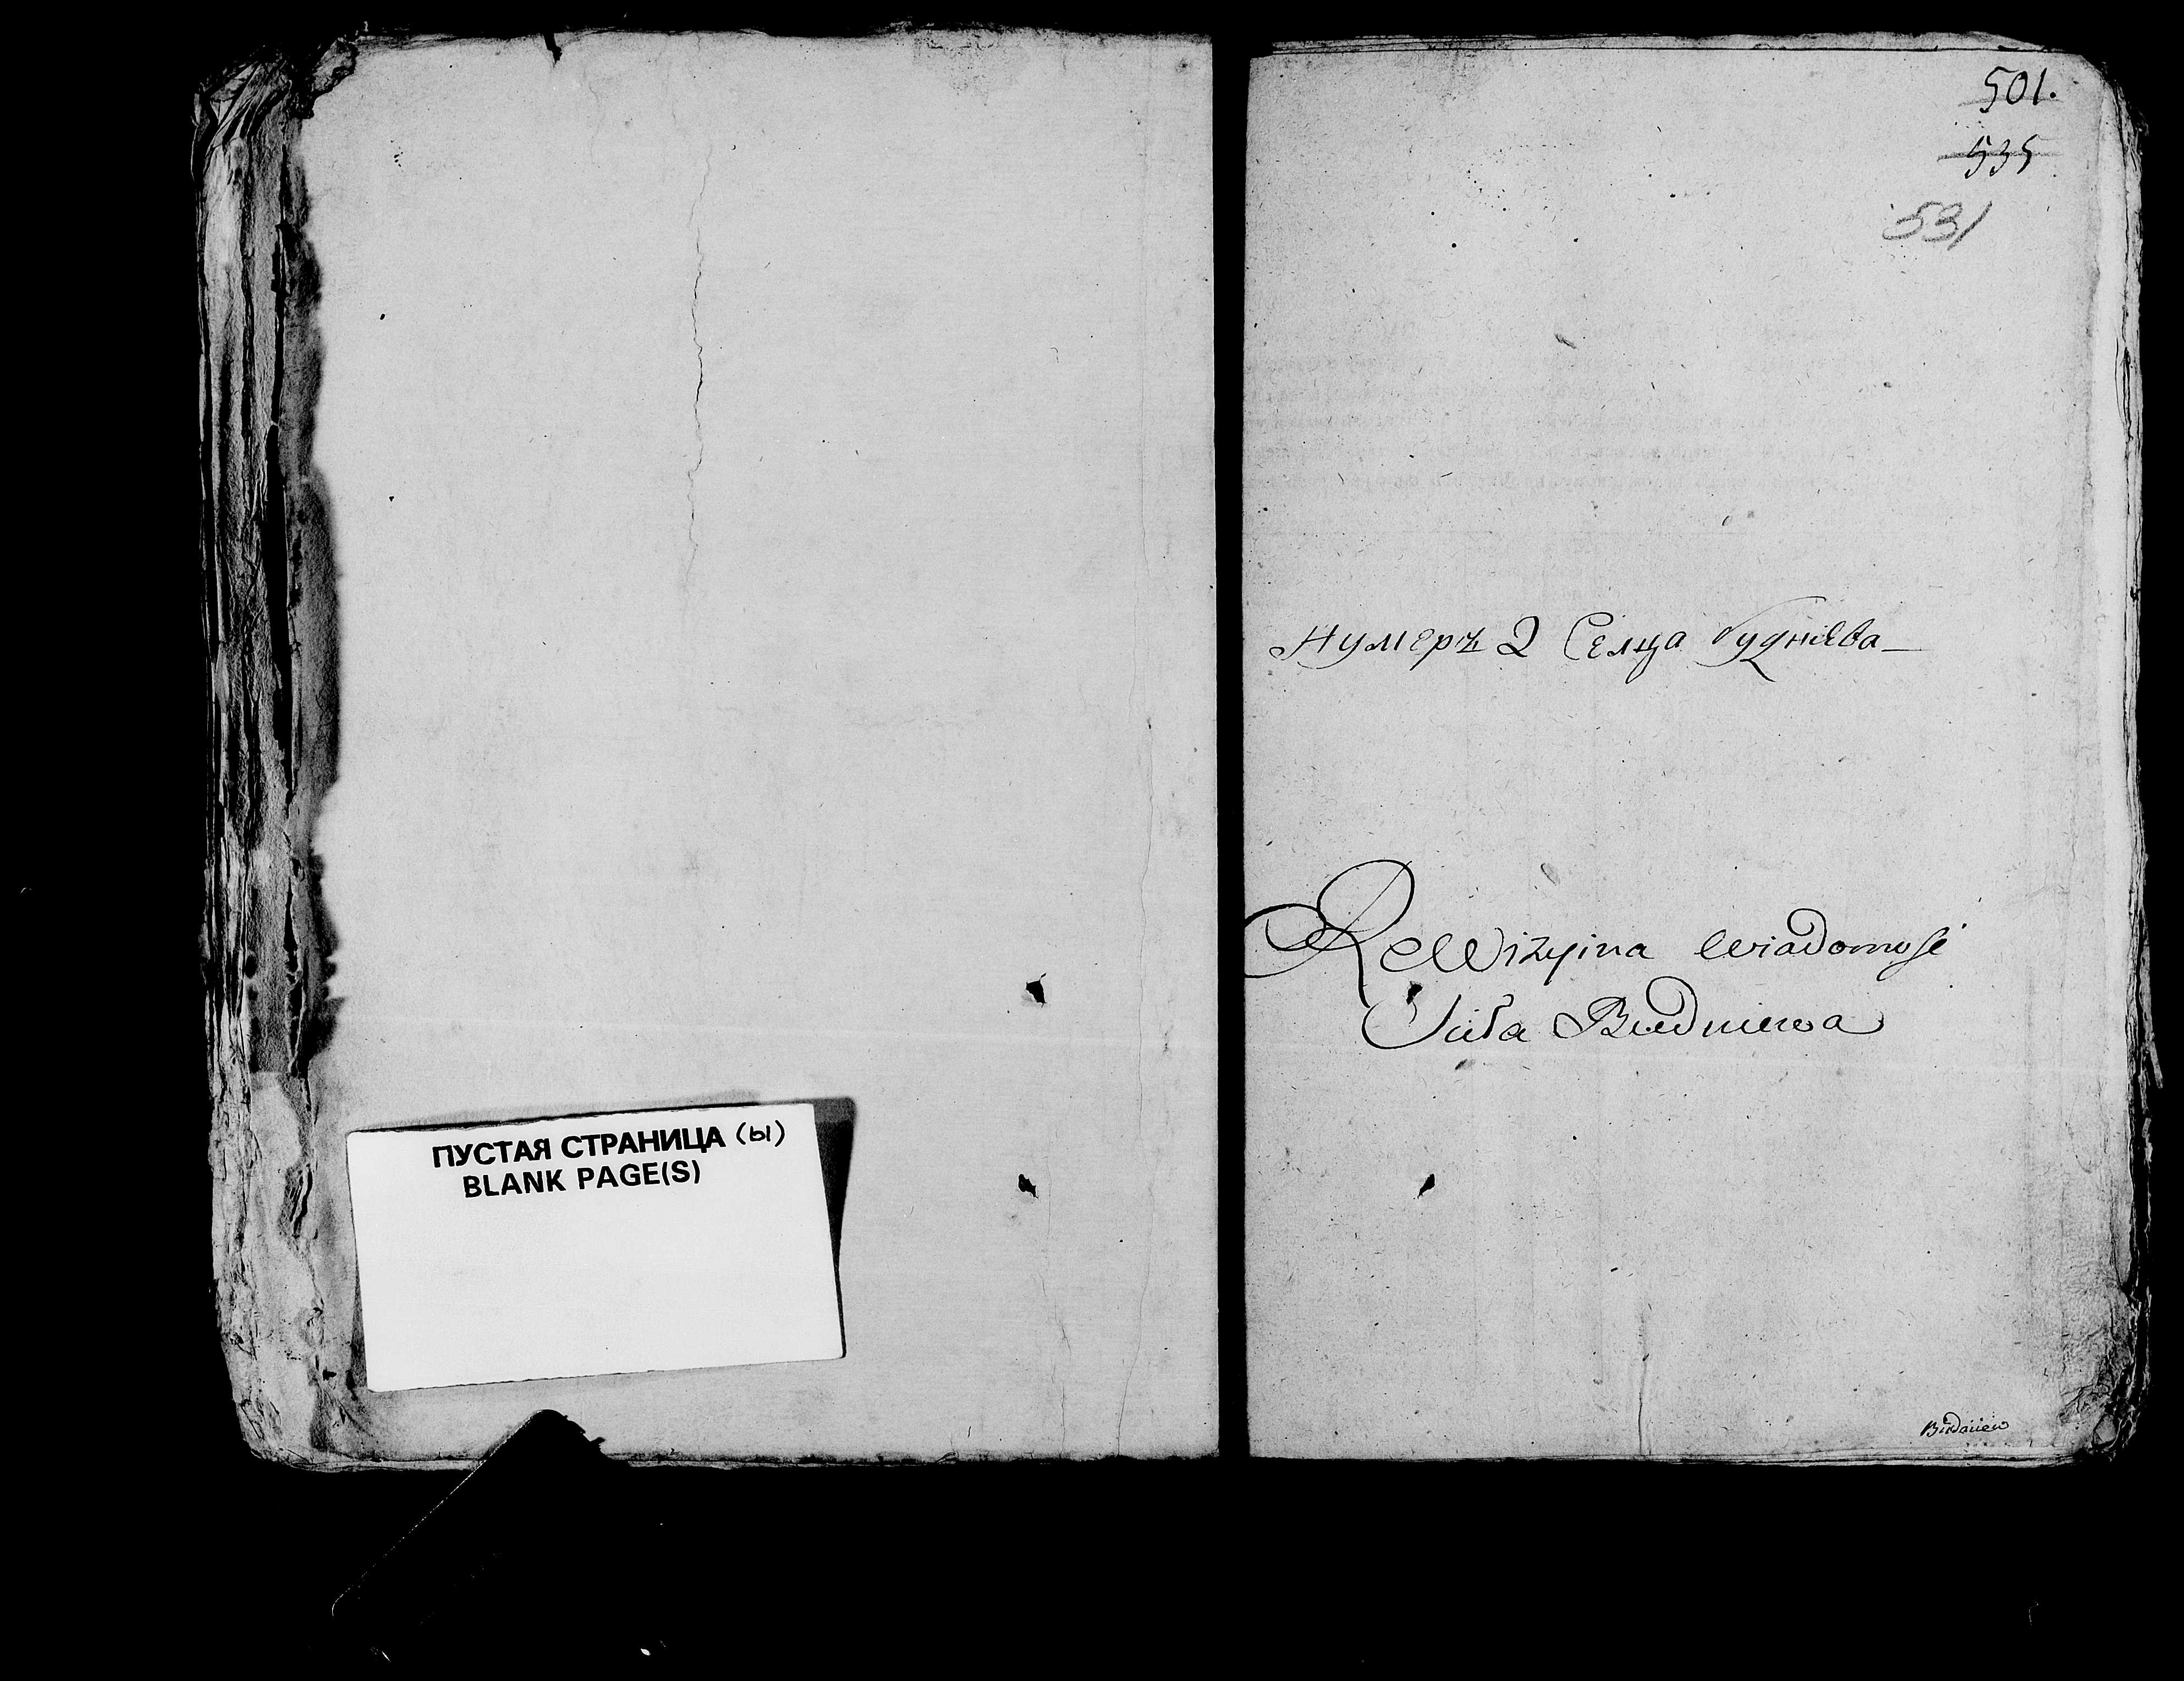 ПУСТАЯ СТРАНИЦА (ы)
BLANK PAGE(S)
501.
535
531
Нумеръ 2 Селца Буднїева
Rewizyina Wiadomość
Sieła Budniewa